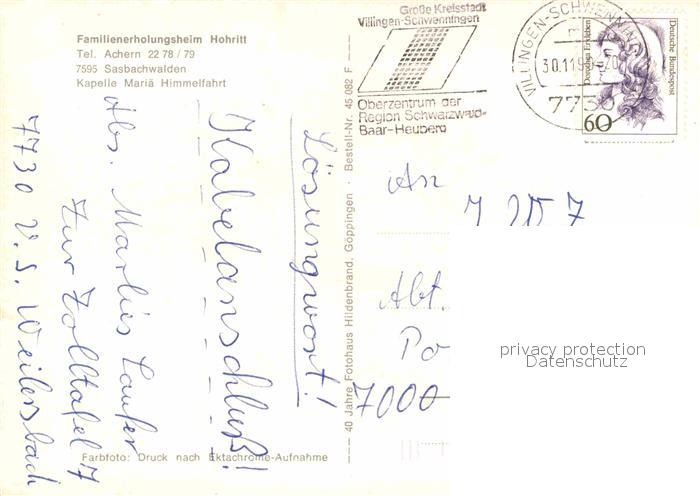 Familienerholungsheim Hohritt
Tel. Achern 22 78 / 79
7595 Sasbachwalden
Kapelle Mariä Himmelfahrt
Lösungwort!
Kabelanschluß!
Abs. Marlies Laufer
Zur Zolltafel 7
7730 V.S. Weilersbach
Farbfoto: Druck nach Ektachrome-Aufnahme
40 Jahre Fotohaus Hildenbrand, Göppingen · Bestell-Nr. 45 082 F
Große Kreisstadt
Villingen-Schwenningen
Oberzentrum der
Region Schwarzwald-
Baar-Heuberg
VILLINGEN-SCHWENNING
30.11.9
7730
Dorothea Erxleben
Deutsche Bundespost
60
An
Abt.
Po
7000
privacy protection
Datenschutz